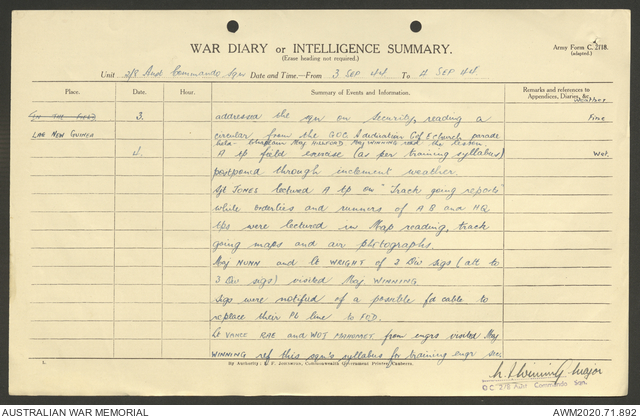 WAR DIARY or INTELLIGENCE SUMMARY.
(Erase heading not required.)
Army Form C. 2118.
(adapted.)
Unit 2/8 Aust Commando Sqn Date and Time.—From 3 SEP 44 To 4 SEP 44
Place. Date. Hour. Summary of Events and Information. Remarks and references to Appendices, Diaries, &c.
Weather
IN THE FIELD 3. addressed the sqn on Security, reading a Fine
LAE NEW GUINEA circular from the GOC A dedication C of E Church parade
held. Chaplain Maj HILLFORD Maj WINNING read the lesson.
4. A tp field exercise (as per training syllabus) Wet.
postponed through inclement weather.
Sgt JONES lectured A tp on "Track going reports"
while orderlies and runners of A B and HQ
tps were lectured in Map reading, track
going maps and air photographs.
Maj NUNN and Lt WRIGHT of 3 Div sigs (att to
3 Div sigs) visited Maj WINNING
Sigs were notified of a possible fd cable to
replace their P6 line to FDD.
Lt VANCE RAE and WO1 MAHOMET from engrs visited Maj
WINNING ref this sqn's syllabus for training engr sec.
1. By Authority: Commonwealth Government Printer, Canberra.
Major
O.C. 2/8 Aust Commando Sqn.
AUSTRALIAN WAR MEMORIAL AWM2020.71.892